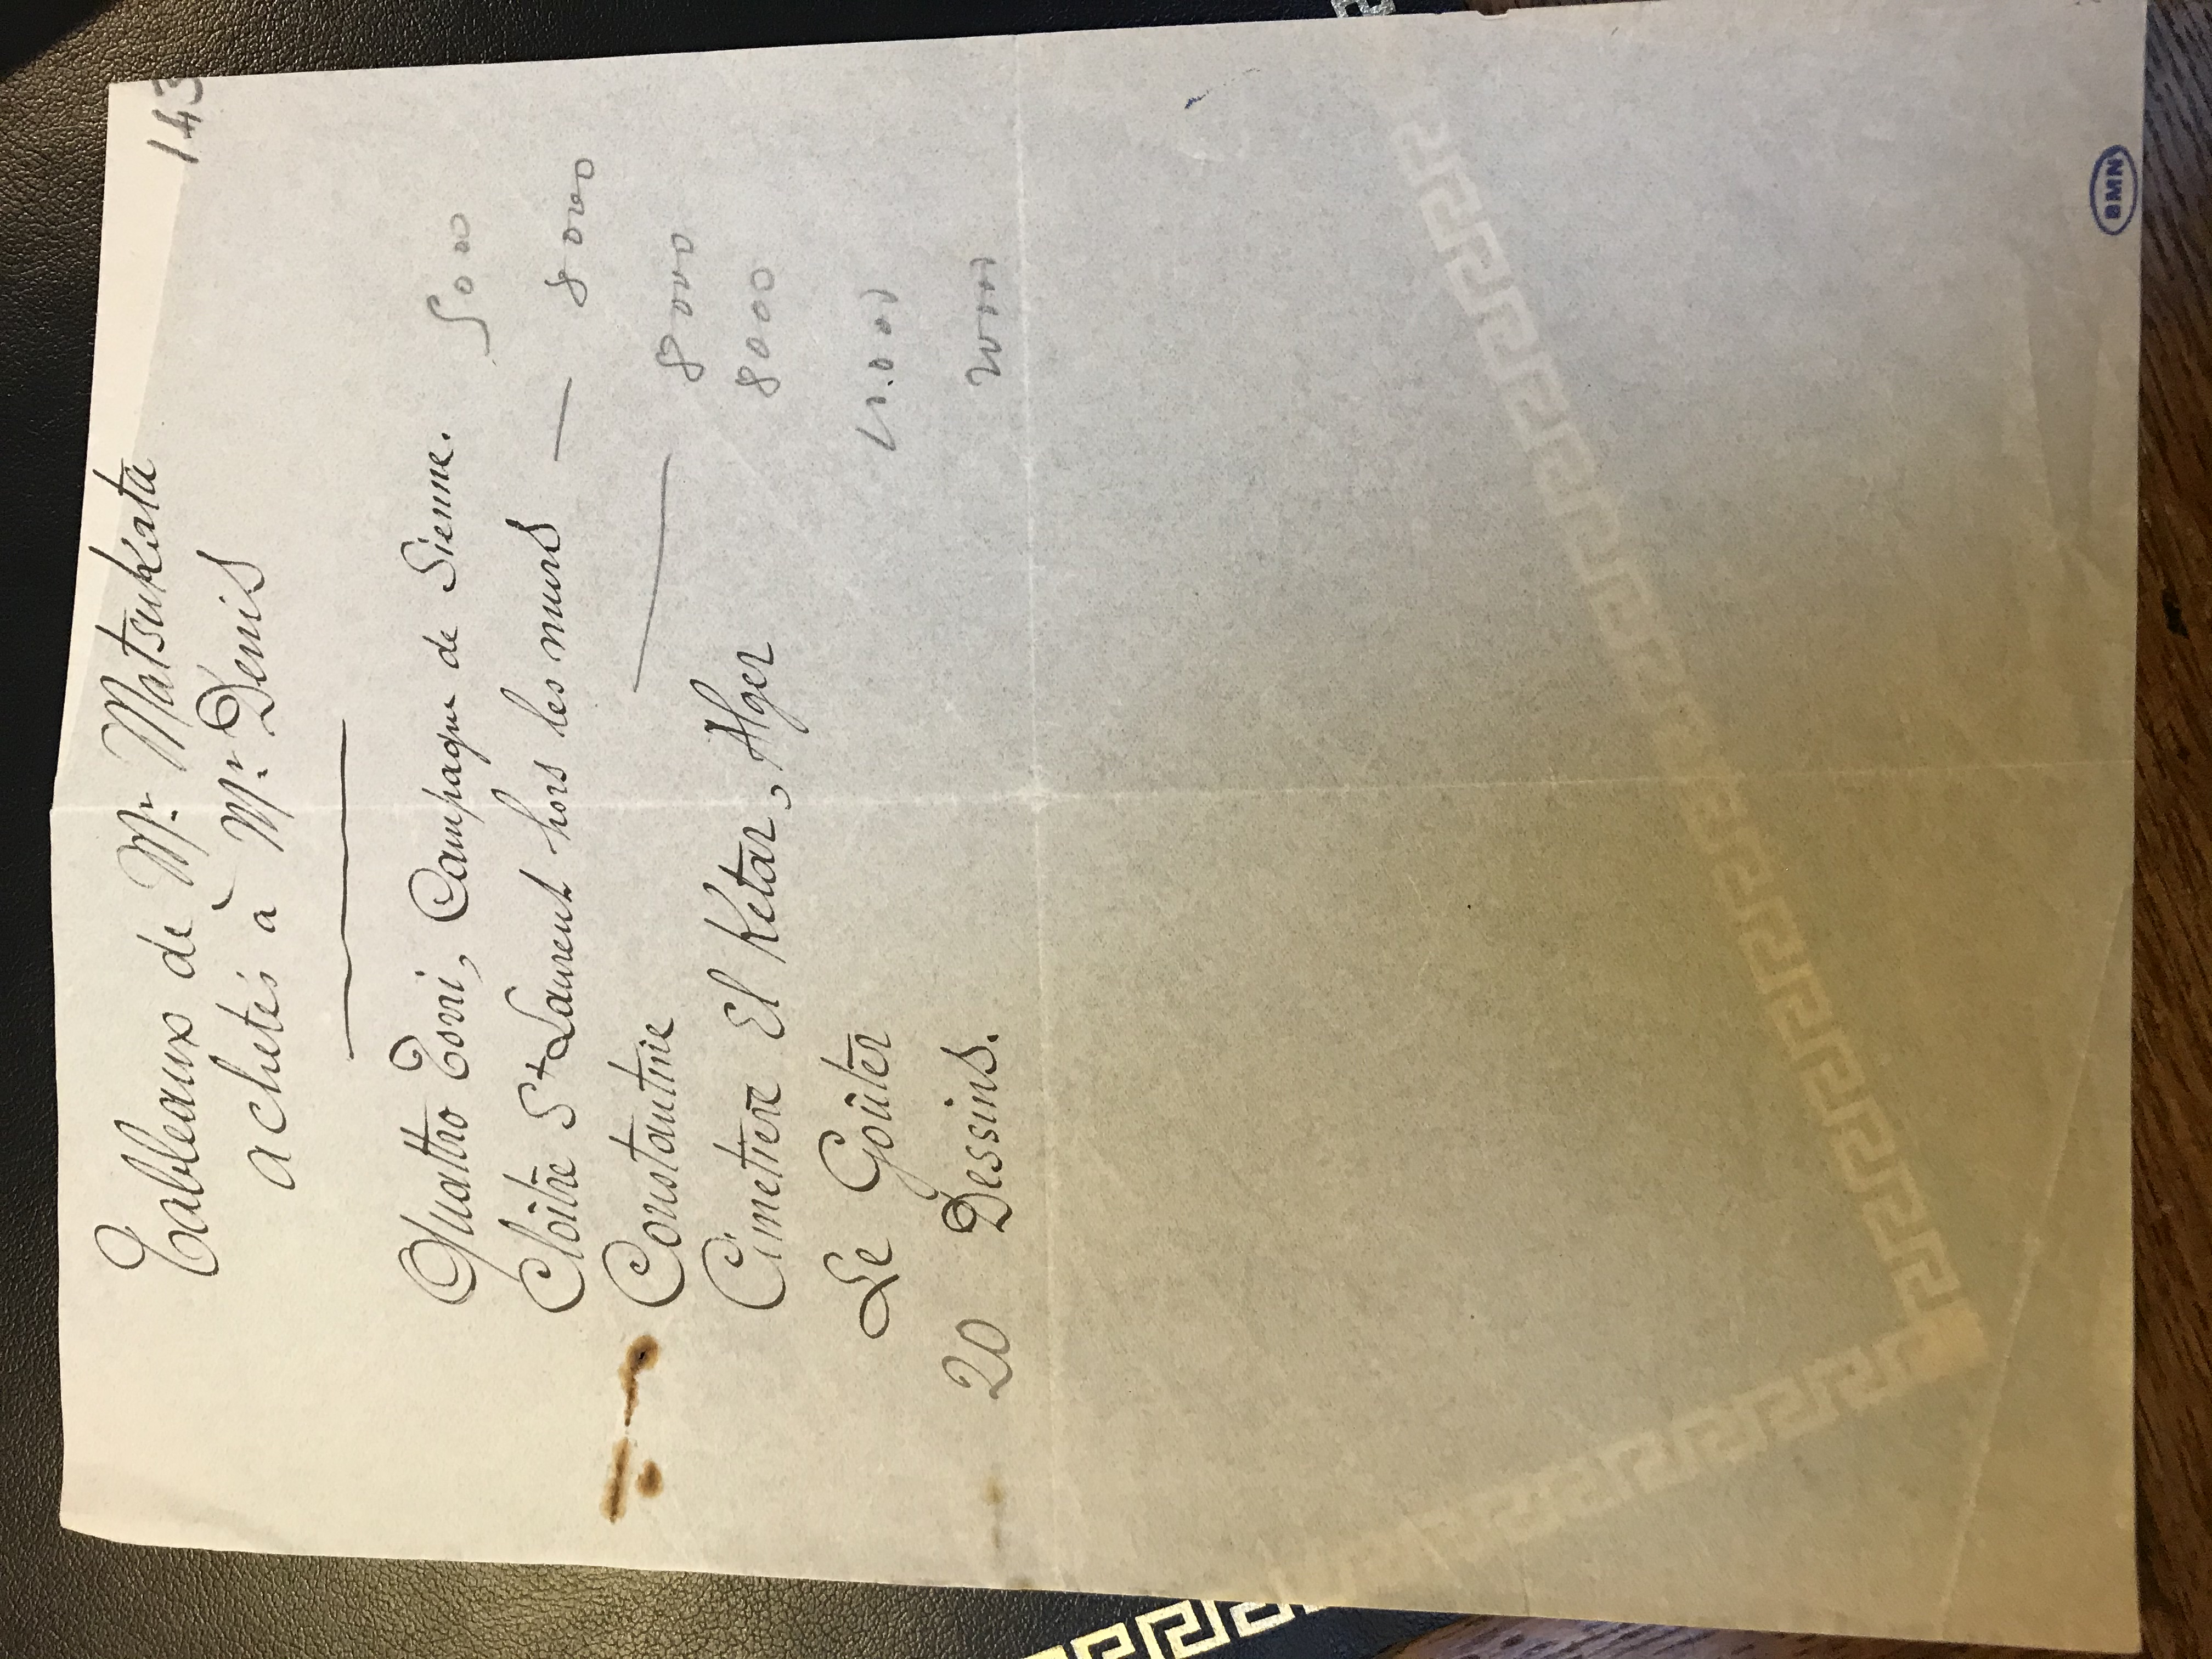 143
Tableaux de Mr. Matsukata
achetés à Mr. Denis
Quattro Torri, Campagne de Sienne. 5000
Cloître St Laurent hors les murs — 8000
Constantine — 8000
Cimetière El Ketar, Alger 8000
Le Goûter
20 Dessins. 20000
BMN